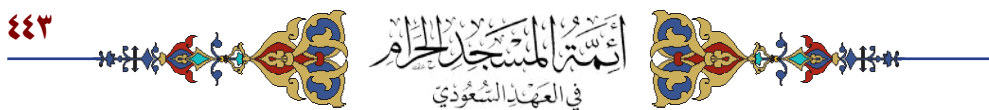 ٤٤٣
أئمة المسجد الحرام
في العهد السعودي